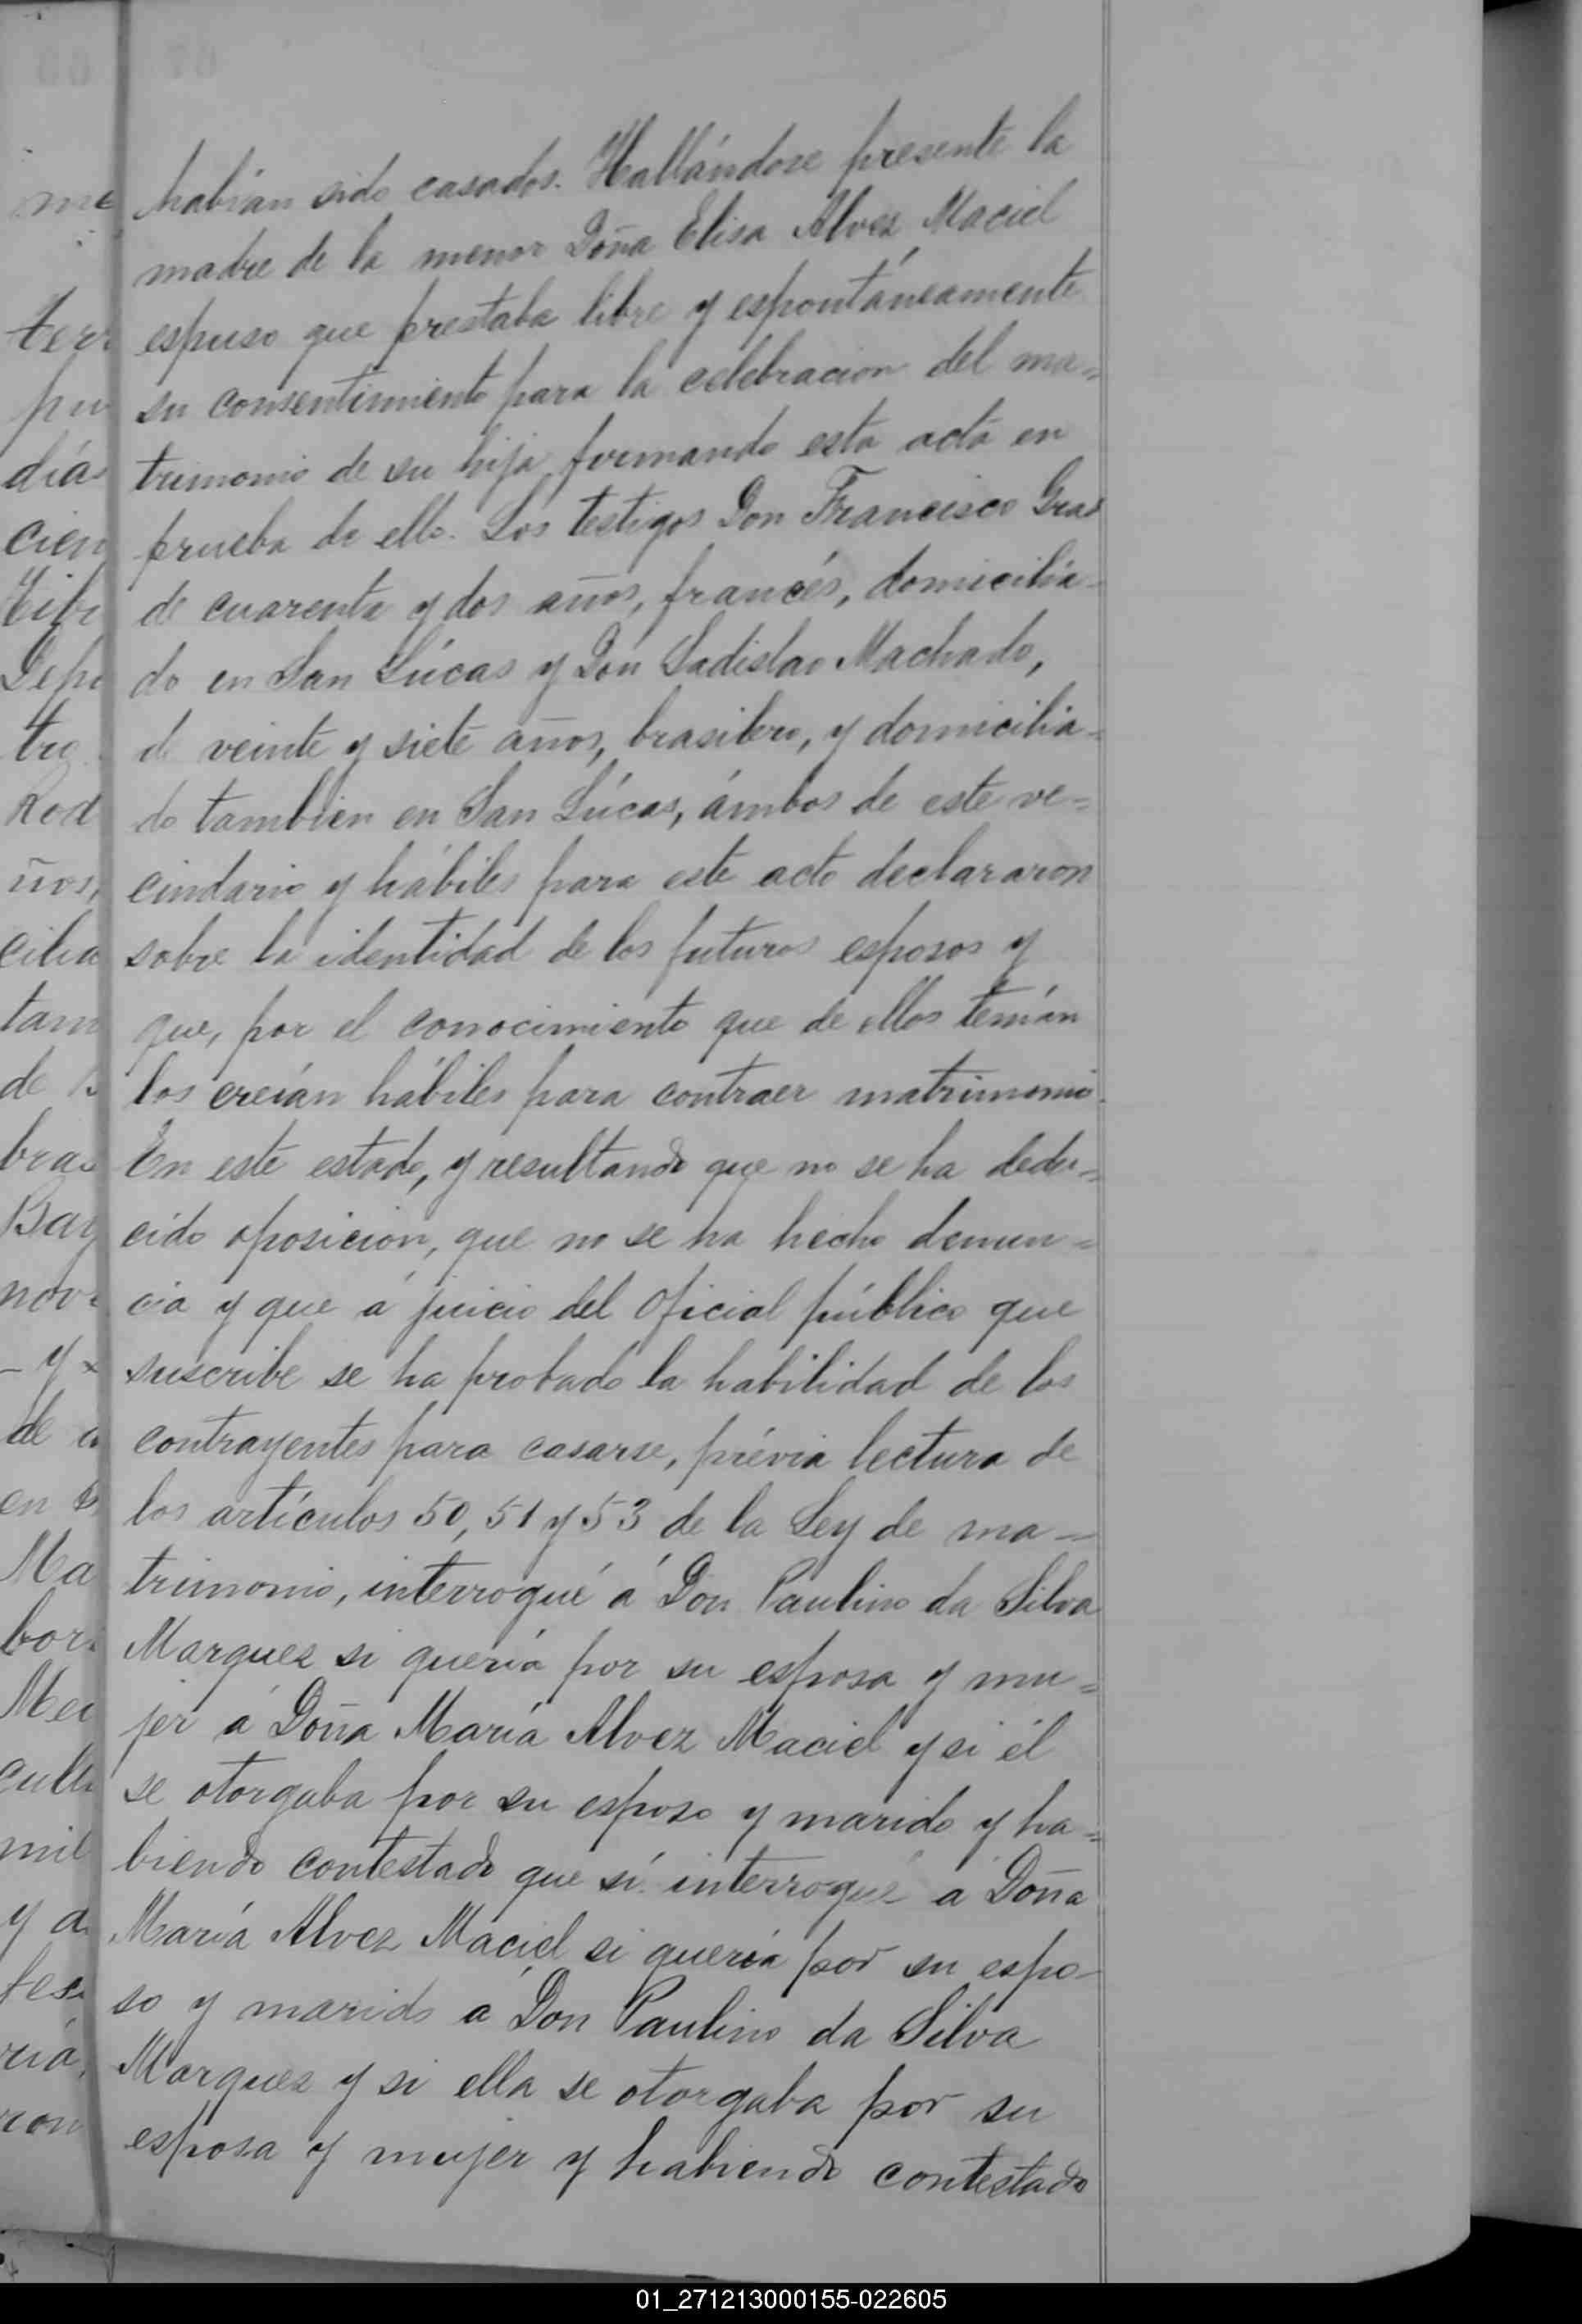 habían sido casados. Hallándose presente la
madre de la menor Doña Elisa Alvez Maciel
espuso que prestaba libre y espontáneamente
su consentimiento para la celebracion del ma=
trimonio de su hija firmando esta acta en
prueba de ello. Los testigos Don Francisco
de cuarenta y dos años, francés, domicilia=
do en San Lúcas y Don Ladislao Machado,
de veinte y siete años, brasilero, y domicilia=
do tambien en San Lúcas, ámbos de este ve=
cindario y hábiles para este acto declararon
sobre la identidad de los futuros esposos y
que, por el conocimiento que de ellos tenían
los creían hábiles para contraer matrimonio.
En este estado, y resultando que no se ha dedu=
cido oposicion, que no se ha hecho denun=
cia y que á juicio del Oficial público que
suscribe se ha probado la habilidad de los
contrayentes para casarse, prévia lectura de
los artículos 50, 51 y 53 de la Ley de ma=
trimonio, interrogué á Don Paulino da Silva
Marquez si quería por su esposa y mu=
jer á Doña María Alvez Maciel y si él
se otorgaba por su esposo y marido y ha=
biendo contestado que sí interrogué a Doña
María Alvez Maciel si quería por su espo-
so y marido á Don Paulino da Silva
Marquez y si ella se otorgaba por su
esposa y mujer y habiendo contestado
01_271213000155-022605